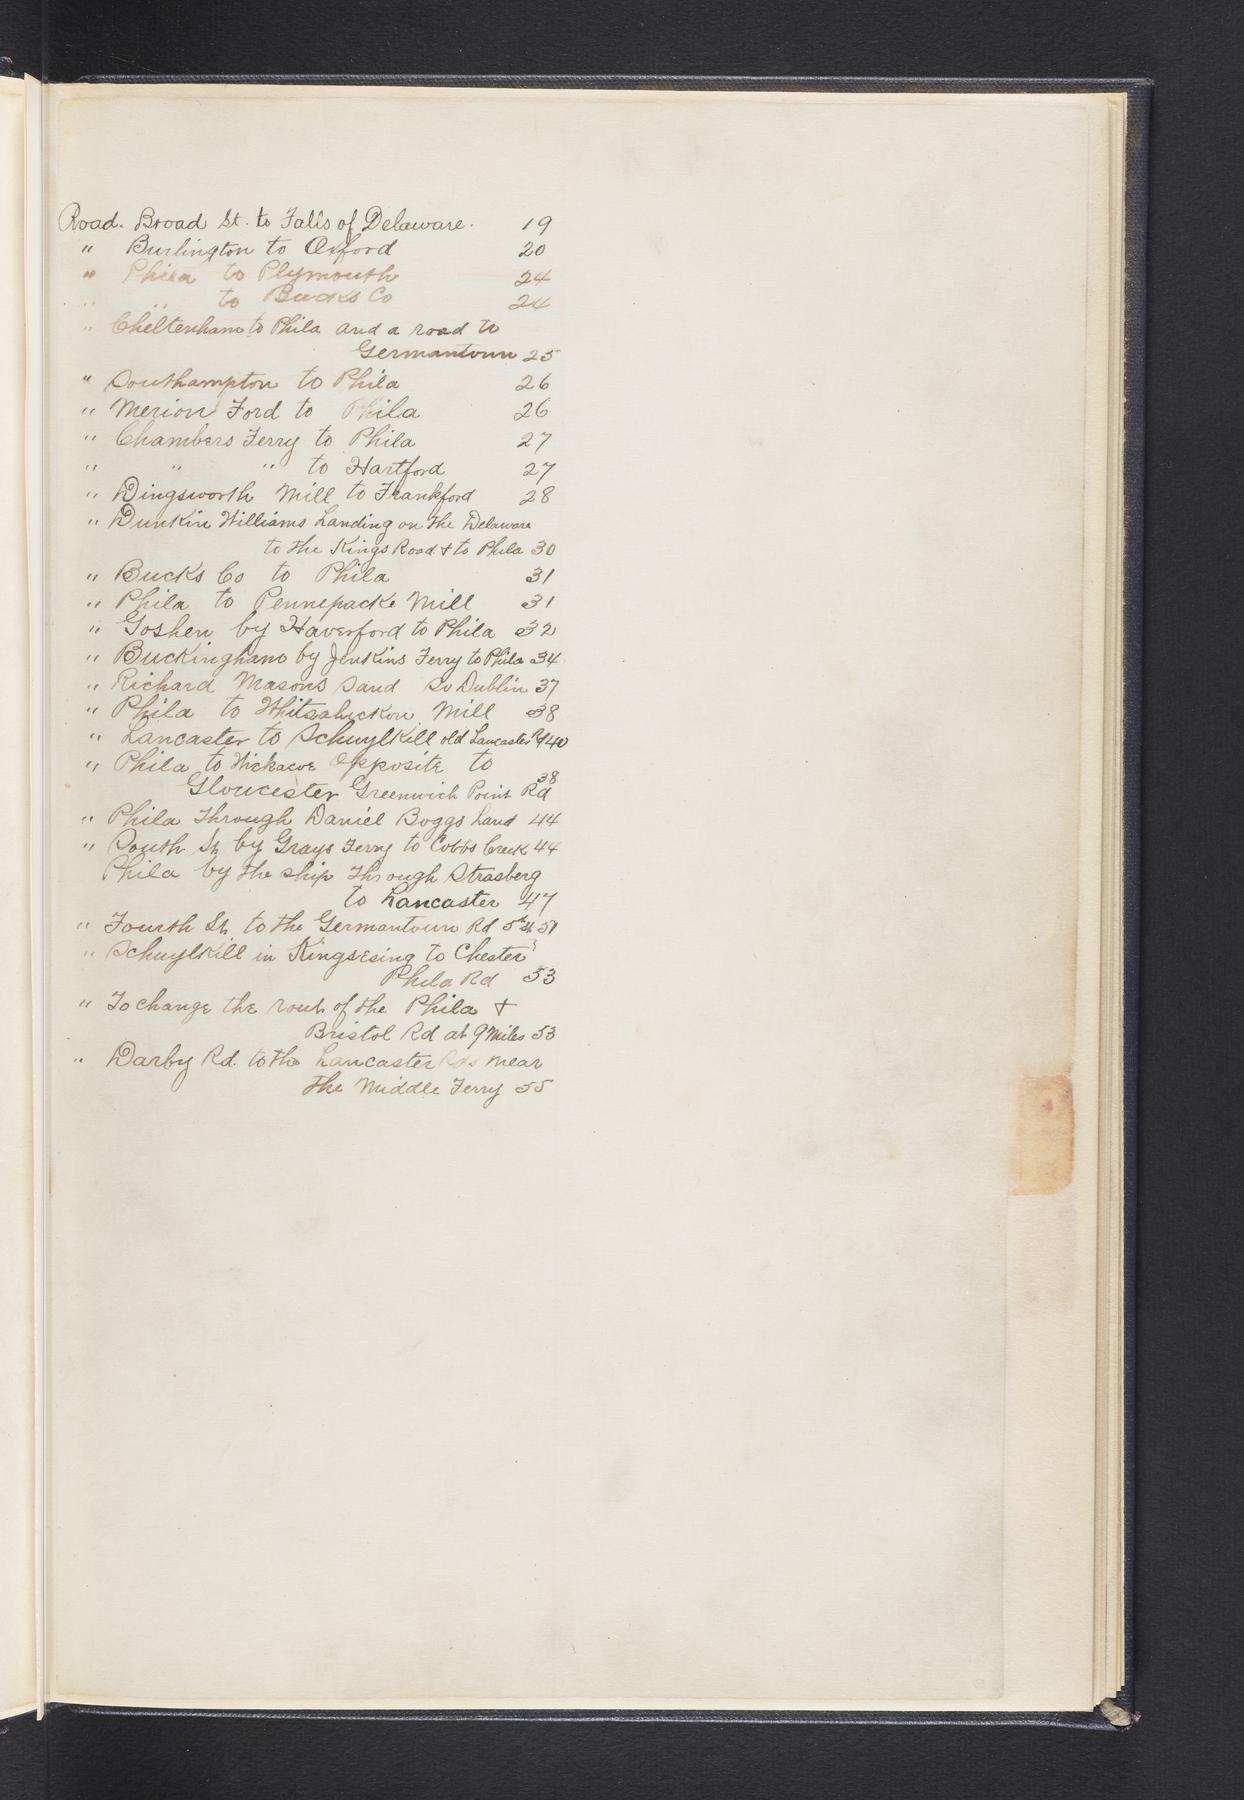 Road. Broad St. to Falls of Delaware. 19
" Burlington to Oxford 20
" Phila to Plymouth 24
" " to Bucks Co 24
" Cheltenham to Phila and a road to
Germantown 25
" Southampton to Phila 26
" Merion Ford to Phila 26
" Chambers Ferry to Phila 27
" " " to Hartford 27
" Dingsworth Mill to Frankford 28
" Dunkin Williams Landing on the Delaware
to the Kings Road & to Phila 30
" Bucks Co to Phila 31
" Phila to Pennepacke Mill 31
" Goshen by Haverford to Phila 32
" Buckingham by Jenkins Ferry to Phila 34
" Richard Masons Land So Dublin 37
" Phila to Whitsahickon Mill 38
" Lancaster to Schuylkill old Lancaster Rd 40
" Phila to Wickacoe Opposite to
Gloucester Greenwich Point Rd 38
" Phila Through Daniel Boggs Land 44
" South St by Grays Ferry to Cobbs Creek 44
Phila by the ship Through Strasberg
to Lancaster 47
" Fourth St to the Germantown Rd 5th St 51
" Schuylkill in Kingsesing to Chester
Phila Rd 53
" To change the rout of the Phila &
Bristol Rd at 9 Miles 53
" Darby Rd. to the Lancaster Rds near
The Middle Ferry 55